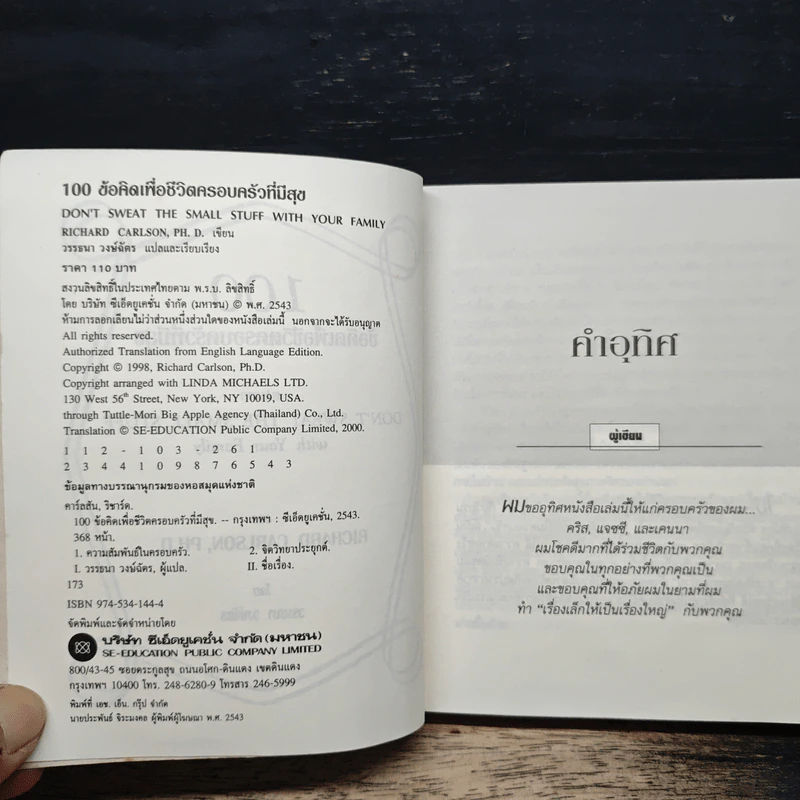 100 ข้อคิดเพื่อชีวิตครอบครัวที่มีสุข
DON'T SWEAT THE SMALL STUFF WITH YOUR FAMILY
RICHARD CARLSON, PH. D. เขียน
วรรธนา วงษ์ฉัตร แปลและเรียบเรียง
ราคา 110 บาท
สงวนลิขสิทธิ์ในประเทศไทยตาม พ.ร.บ. ลิขสิทธิ์
โดย บริษัท ซีเอ็ดยูเคชั่น จำกัด (มหาชน) © พ.ศ. 2543
ห้ามการลอกเลียนไม่ว่าส่วนหนึ่งส่วนใดของหนังสือเล่มนี้ นอกจากจะได้รับอนุญาต
All rights reserved.
Authorized Translation from English Language Edition.
Copyright © 1998, Richard Carlson, Ph.D.
Copyright arranged with LINDA MICHAELS LTD.
130 West 56th Street, New York, NY 10019, USA.
through Tuttle-Mori Big Apple Agency (Thailand) Co., Ltd.
Translation © SE-EDUCATION Public Company Limited, 2000.
1 1 2 - 1 0 3 - 2 6 1
2 3 4 4 1 0 9 8 7 6 5 4 3
ข้อมูลทางบรรณานุกรมของหอสมุดแห่งชาติ
คาร์ลสัน, ริชาร์ด.
100 ข้อคิดเพื่อชีวิตครอบครัวที่มีสุข. -- กรุงเทพฯ : ซีเอ็ดยูเคชั่น, 2543.
368 หน้า.
1. ความสัมพันธ์ในครอบครัว. 2. จิตวิทยาประยุกต์.
I. วรรธนา วงษ์ฉัตร, ผู้แปล. II. ชื่อเรื่อง.
173
ISBN 974-534-144-4
จัดพิมพ์และจัดจำหน่ายโดย
บริษัท ซีเอ็ดยูเคชั่น จำกัด (มหาชน)
SE-EDUCATION PUBLIC COMPANY LIMITED
800/43-45 ซอยตระกูลสุข ถนนอโศก-ดินแดง เขตดินแดง
กรุงเทพฯ 10400 โทร. 248-6280-9 โทรสาร 246-5999
พิมพ์ที่ เอช. เอ็น. กรุ๊ป จำกัด
นายประพันธ์ จิระมงคล ผู้พิมพ์ผู้โฆษณา พ.ศ. 2543
คำอุทิศ
ผู้เขียน
ผมขออุทิศหนังสือเล่มนี้ให้แก่ครอบครัวของผม...
คริส, แจซซี, และเคนนา
ผมโชคดีมากที่ได้ร่วมชีวิตกับพวกคุณ
ขอบคุณในทุกอย่างที่พวกคุณเป็น
และขอบคุณที่ให้อภัยผมในยามที่ผม
ทำ "เรื่องเล็กให้เป็นเรื่องใหญ่" กับพวกคุณ